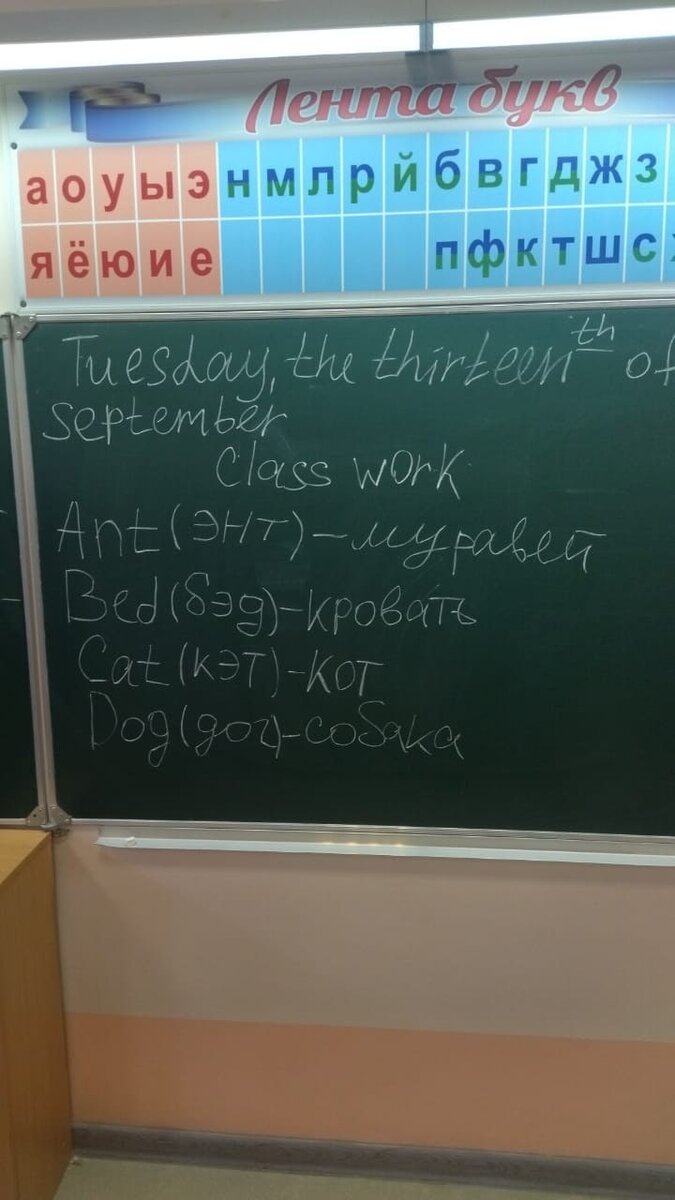 Лента букв
а о у ы э н м л р й б в г д ж з
я ё ю и е п ф к т ш с
Tuesday, the thirteenth of
september
Class work
Ant (энт) - муравей
Bed (бэд) - кровать
Cat (кэт) - кот
Dog (дог) - собака